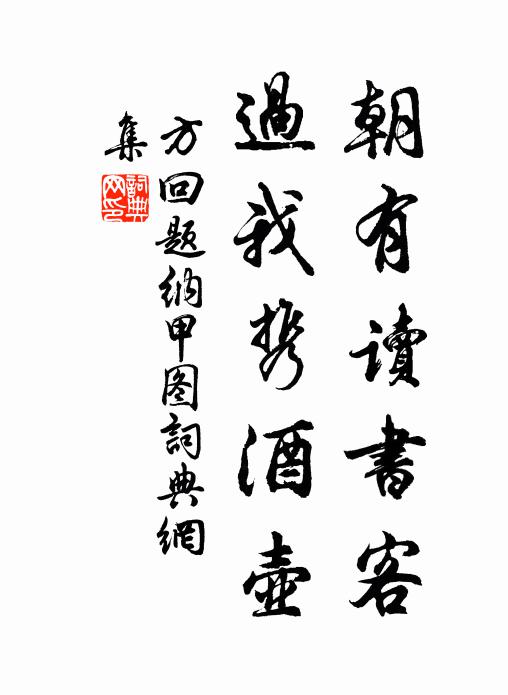 朝有讀書客
過我携酒壺
方回題納甲图詞典網
集
詞典网印